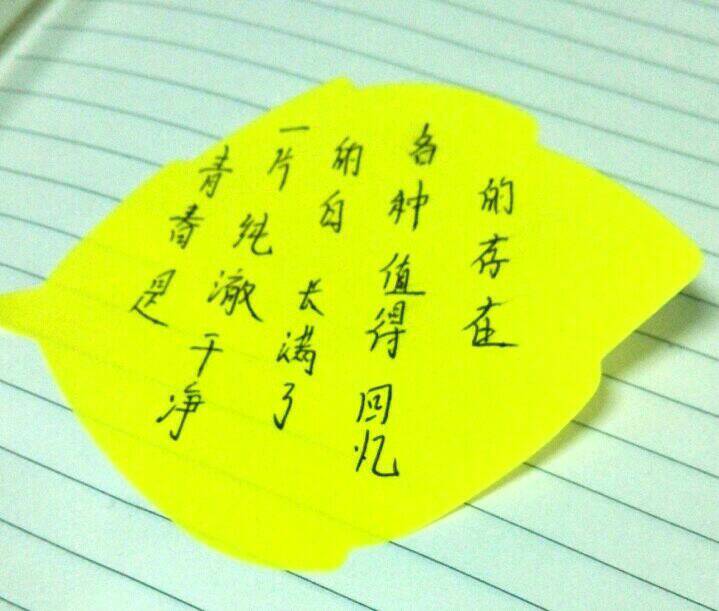 青春是
一片纯澈干净
的白长满了
各种值得回忆
的存在